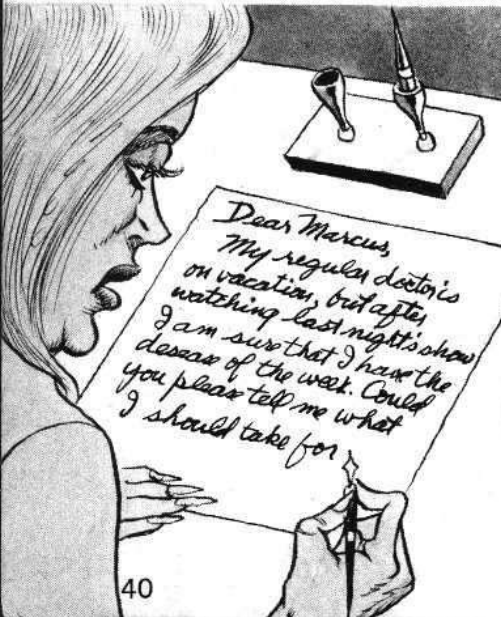 Dear Marcus,
My regular doctor is
on vacation, but after
watching last night's show
I am sure that I have the
desease of the week. Could
you please tell me what
I should take for
40